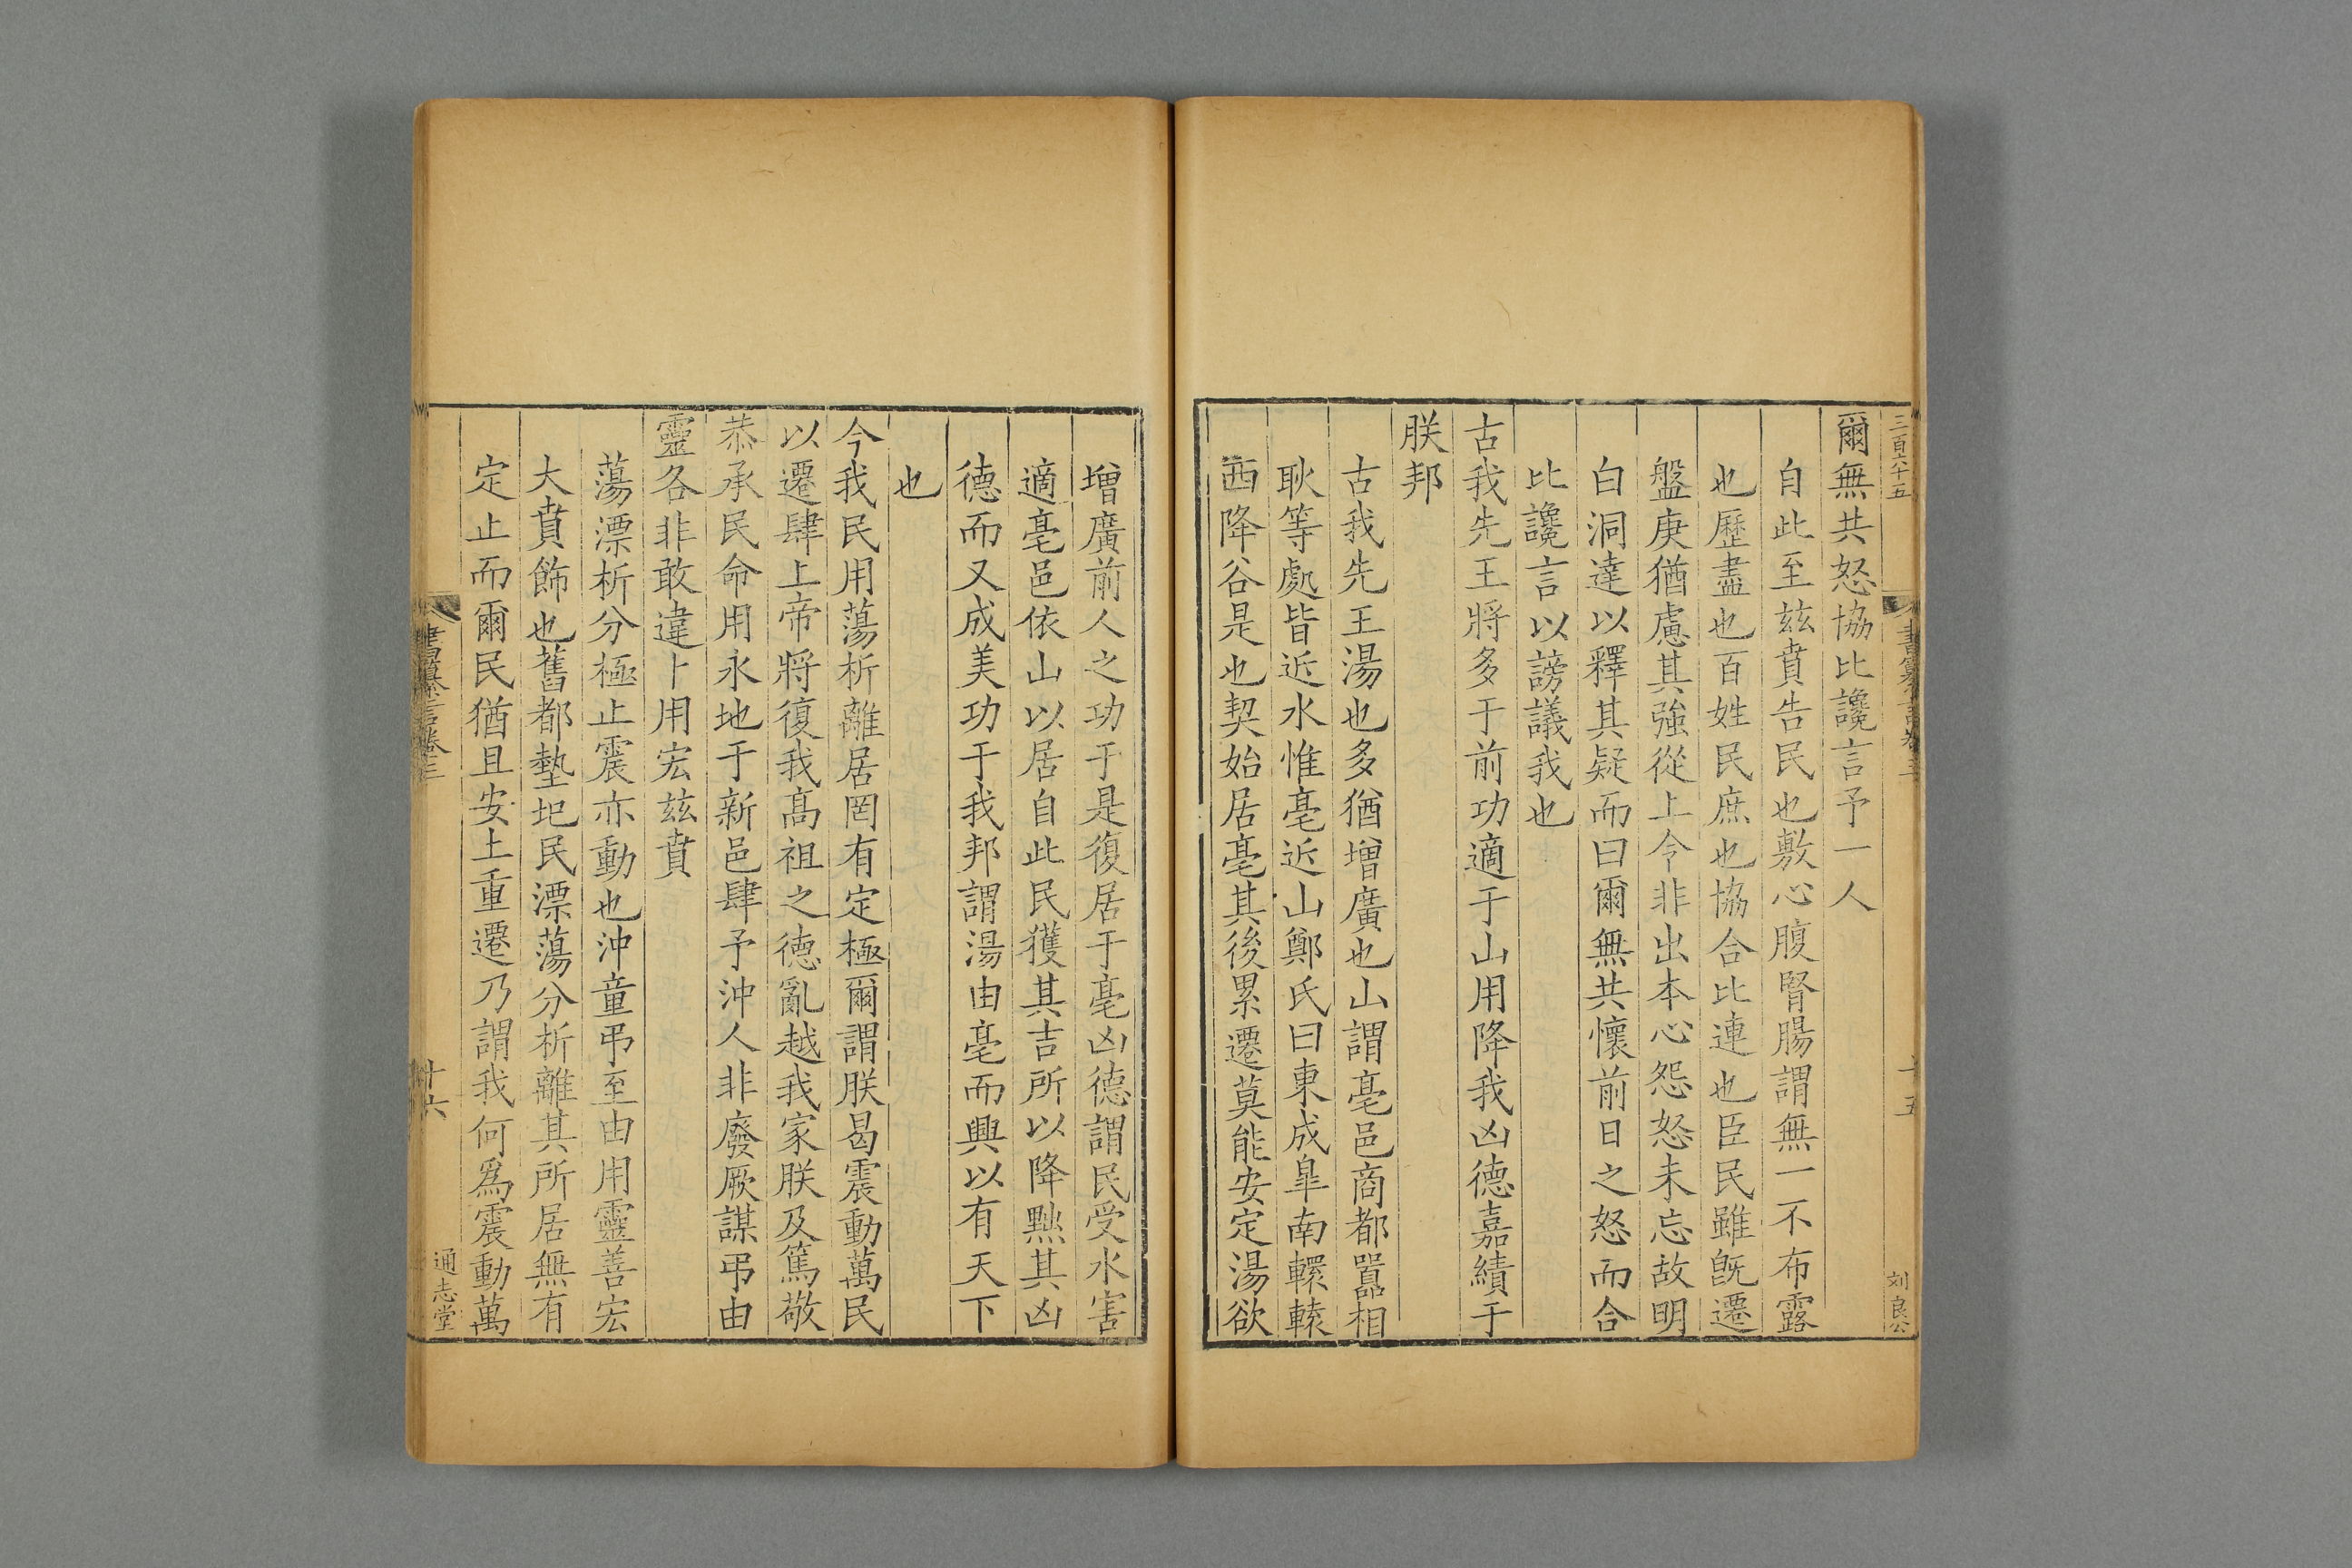 三百六十五
書纂言卷三
十五
刘良公
爾無共怒協比讒言予一人
自此至兹賁告民也敷心腹腎腸謂無一不布露
也歷盡也百姓民庶也協合比連也臣民雖旣遷
盤庚猶慮其強從上令非出本心怨怒未忘故明
白洞達以釋其疑而曰爾無共懷前日之怒而合
比讒言以謗議我也
古我先王將多于前功適于山用降我凶德嘉績于
朕邦
古我先王湯也多猶增廣也山謂亳邑商都嚻相
耿等處皆近水惟亳近山鄭氏曰東成臯南轘轅
西降谷是也契始居亳其後累遷莫能安定湯欲
增廣前人之功于是復居于亳凶德謂民受水害
適亳邑依山以居自此民獲其吉所以降黜其凶
德而又成美功于我邦謂湯由亳而興以有天下
也
今我民用蕩析離居罔有定極爾謂朕曷震動萬民
以遷肆上帝將復我高祖之德亂越我家朕及篤敬
恭承民命用永地于新邑肆予沖人非廢厥謀弔由
靈各非敢違卜用宏兹賁
蕩漂析分極止震亦動也沖童弔至由用靈善宏
大賁飾也舊都墊圮民漂蕩分析離其所居無有
定止而爾民猶且安土重遷乃謂我何爲震動萬
書纂言卷三
十六
通志堂